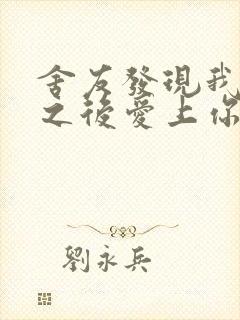 舍友發現我
之後愛上你
劉永兵